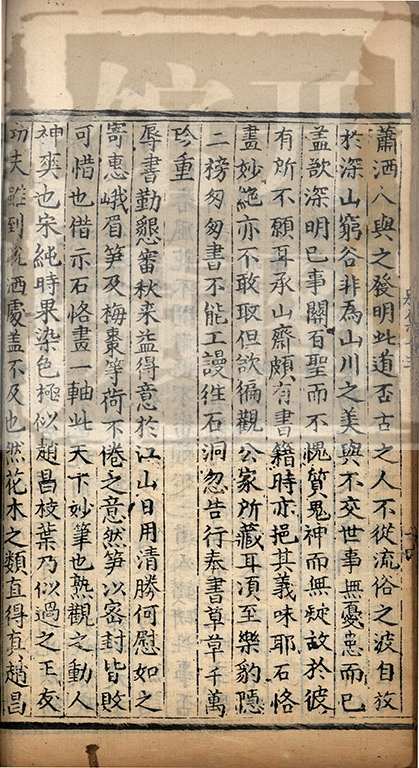 蕭洒人與之發明此道否古之人不從流俗之波自放
於深山窮谷非為山川之美與不交世事無憂患而已
盖欲深明已事關百聖而不愧質鬼神而無疑故於彼
有所不願耳承山齋頗有書籍時亦挹其義味耶石恪
畫妙絶亦不敢取但欲徧觀公家所藏耳項至樂豹隱
二榜匆匆書不能工謾徃石洞忽告行奉書草草千萬
珍重
辱書勤懇審秋来益得意於江山日用清勝何慰如之
寄惠峨眉笋及梅棗等荷不倦之意然笋以密封皆敗
可惜也借示石恪畫一軸此天下妙筆也熟觀之動人
神爽也宋純時果染色極似趙昌枝葉乃似過之王友
功夫雖到 洒處盖不及也然花木之類直得真趙昌